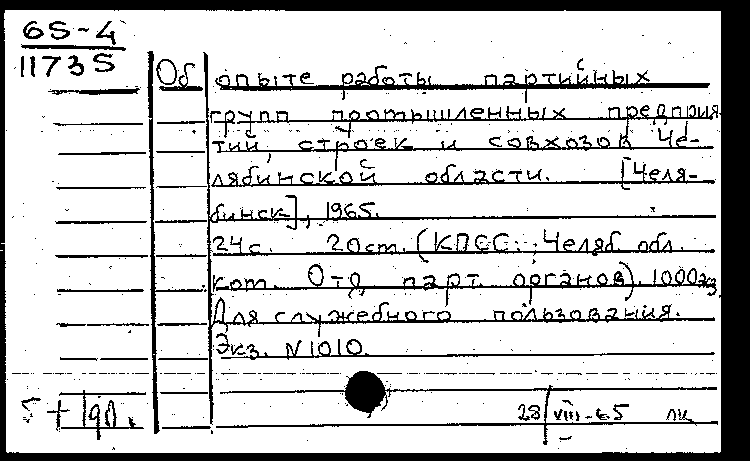 65-4
11735
Об опыте работы партийных
групп промышленных предприя
тий, строек и совхозов Че-
лябинской области. [Челя-
бинск], 1965.
24с. 20см. (КПСС. Челяб. обл.
ком. Отд. парт. органов). 1000экз
Для служебного пользования.
Экз. N1010.
28/VIII-65 лк